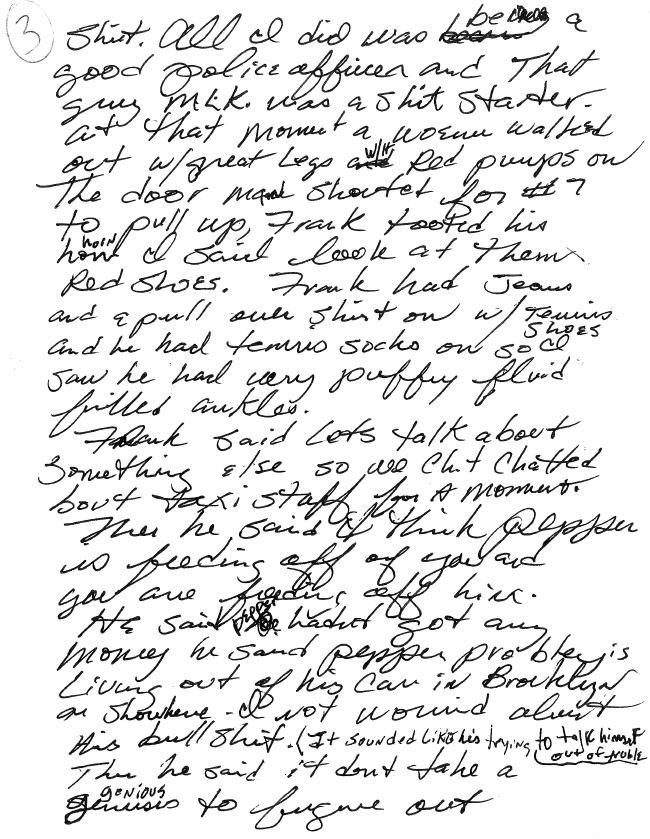 3
Shirt. All I did was being a
good police officer and That
guy MLK. was a shit starter.
at That moment a woman walked
out w/great Legs w/H Red pumps on
The door man shoutet for #7
to pull up, Frank tooted his
horn I said look at Them
Red Shoes. Frank had Jeans
and a pull over shirt on w/ Tennis
SHOES
and he had tennis socks on so I
saw he had very puffy fluid
filled ankles.
Frank said Lets talk about
Something else so we Chit Chatted
bout taxi stuff for A moment.
Then he said I think pepper
is feeding off of you and
you are feeding off him.
He said pepper hadnt got any
money he said pepper problem is
Living out of his Car in Brooklyn
or Somewhere - I not worried about
His bull shit. (It sounded like his trying to talk himself
out of trouble
Then he said it dont take a
genious to fugure out